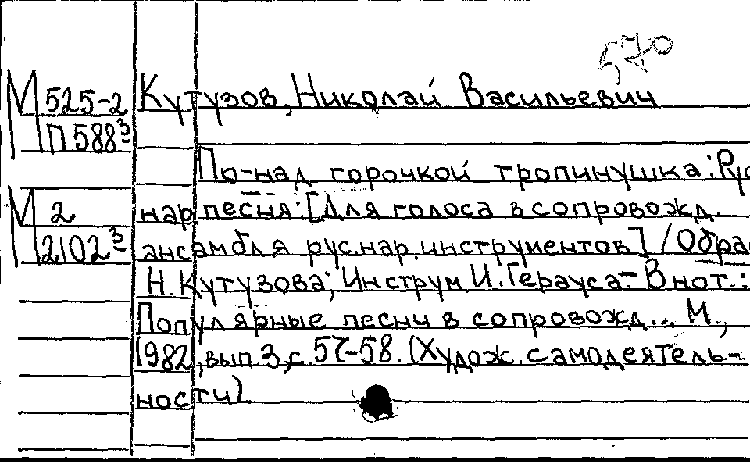 570
М 525-2
П 588³
Кутузов, Николай Васильевич
По-над горочкой тропинушка: Рус
М 2
2102³
нар. песня: [Для голоса в сопровожд.
ансамбля рус. нар. инструментов] / Обра
Н. Кутузова; Инструм. И. Герауса.- В нот.:
Популярные песни в сопровожд... М.,
1982, вып. 3, с. 57-58. (Худож. самодеятель-
ности).